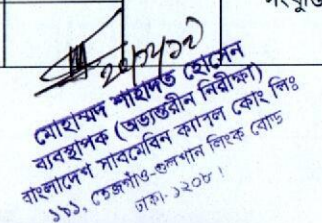 মোহাম্মদ শাহাদত হোসেন
ব্যবস্থাপক (অভ্যন্তরীন নিরীক্ষা)
বাংলাদেশ সাবমেরিন ক্যাবল কোং লিঃ
তেজগাঁও-গুলশান লিংক রোড
ঢাকা-১২০৮।